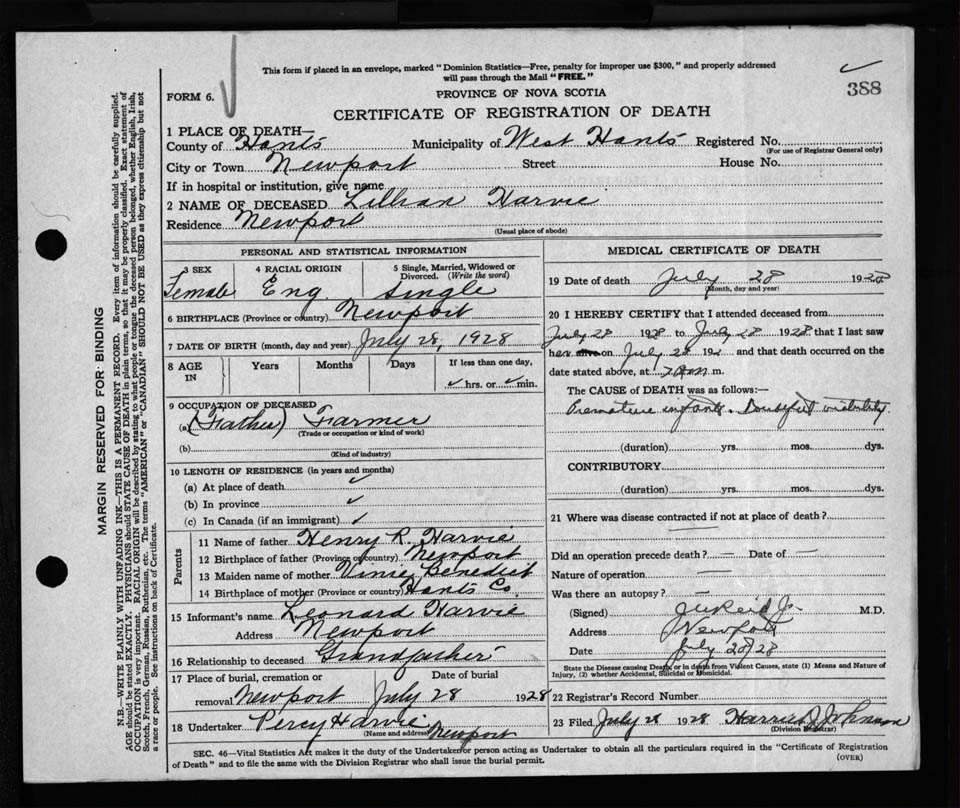 This form if placed in an envelope, marked " Dominion Statistics—Free, penalty for improper use $300," and properly addressed
will pass through the Mail "FREE."
388
FORM 6.
PROVINCE OF NOVA SCOTIA
CERTIFICATE OF REGISTRATION OF DEATH
1 PLACE OF DEATH—
County of Hants Municipality of West Hants Registered No.
(For use of Registrar General only)
City or Town Newport Street House No.
If in hospital or institution, give name
2 NAME OF DECEASED Lillian Harvie
Residence Newport
(Usual place of abode)
PERSONAL AND STATISTICAL INFORMATION
3 SEX 4 RACIAL ORIGIN 5 Single, Married, Widowed or
Divorced. (Write the word)
Female Eng. Single
6 BIRTHPLACE (Province or country) Newport
7 DATE OF BIRTH (month, day and year) July 28, 1928
8 AGE Years Months Days If less than one day,
IN ✓ hrs. or ✓ min.
9 OCCUPATION OF DECEASED
(a) (Father) Farmer
(Trade or occupation or kind of work)
(b)
(Kind of industry)
10 LENGTH OF RESIDENCE (in years and months)
(a) At place of death ✓
(b) In province ✓
(c) In Canada (if an immigrant) ✓
Parents
11 Name of father Henry R. Harvie
12 Birthplace of father (Province or country) Newport
13 Maiden name of mother Vinie Benedict
14 Birthplace of mother (Province or country) Hants Co.
15 Informant's name Leonard Harvie
Address Newport
16 Relationship to deceased Grandfather
17 Place of burial, cremation or Date of burial
removal Newport July 28 1928
18 Undertaker Percy Harvie
(Name and address) Newport
MEDICAL CERTIFICATE OF DEATH
19 Date of death July 28 1928
(Month, day and year)
20 I HEREBY CERTIFY that I attended deceased from
July 28 1928 to July 28 1928 that I last saw
her on July 28 192 and that death occurred on
date stated above, at m.
The CAUSE of DEATH was as follows:—
Premature infant. Doubtful viability.
(duration) yrs. mos. dys.
CONTRIBUTORY
(duration) yrs. mos. dys.
21 Where was disease contracted if not at place of death?
—
Did an operation precede death? — Date of —
Nature of operation —
Was there an autopsy? —
(Signed) M.D.
Address Newport
Date July 28/28
State the Disease causing Death, or in death from Violent Causes, state (1) Means and Nature of
Injury, (2) whether Accidental, Suicidal or Homicidal.
22 Registrar's Record Number
23 Filed July 28 1928 Harriet J Johnson
(Division Registrar)
SEC. 46—Vital Statistics Act makes it the duty of the Undertaker or person acting as Undertaker to obtain all the particulars required in the "Certificate of Registration
of Death" and to file the same with the Division Registrar who shall issue the burial permit.
(OVER)
MARGIN RESERVED FOR BINDING
N.B.—WRITE PLAINLY WITH UNFADING INK—THIS IS A PERMANENT RECORD. Every item of information should be carefully supplied.
AGE should be stated EXACTLY. PHYSICIANS should STATE CAUSE OF DEATH in plain terms, so that it may be properly classified. Exact statement of
OCCUPATION is very important. RACIAL ORIGIN will be described by stating to what people or tongue the deceased person belonged, whether English, Irish,
Scotch, French, German, Russian, Ruthenian, etc. The terms "AMERICAN" or "CANADIAN" SHOULD NOT BE USED as they express citizenship but not
a race or people. See instructions on back of Certificate.